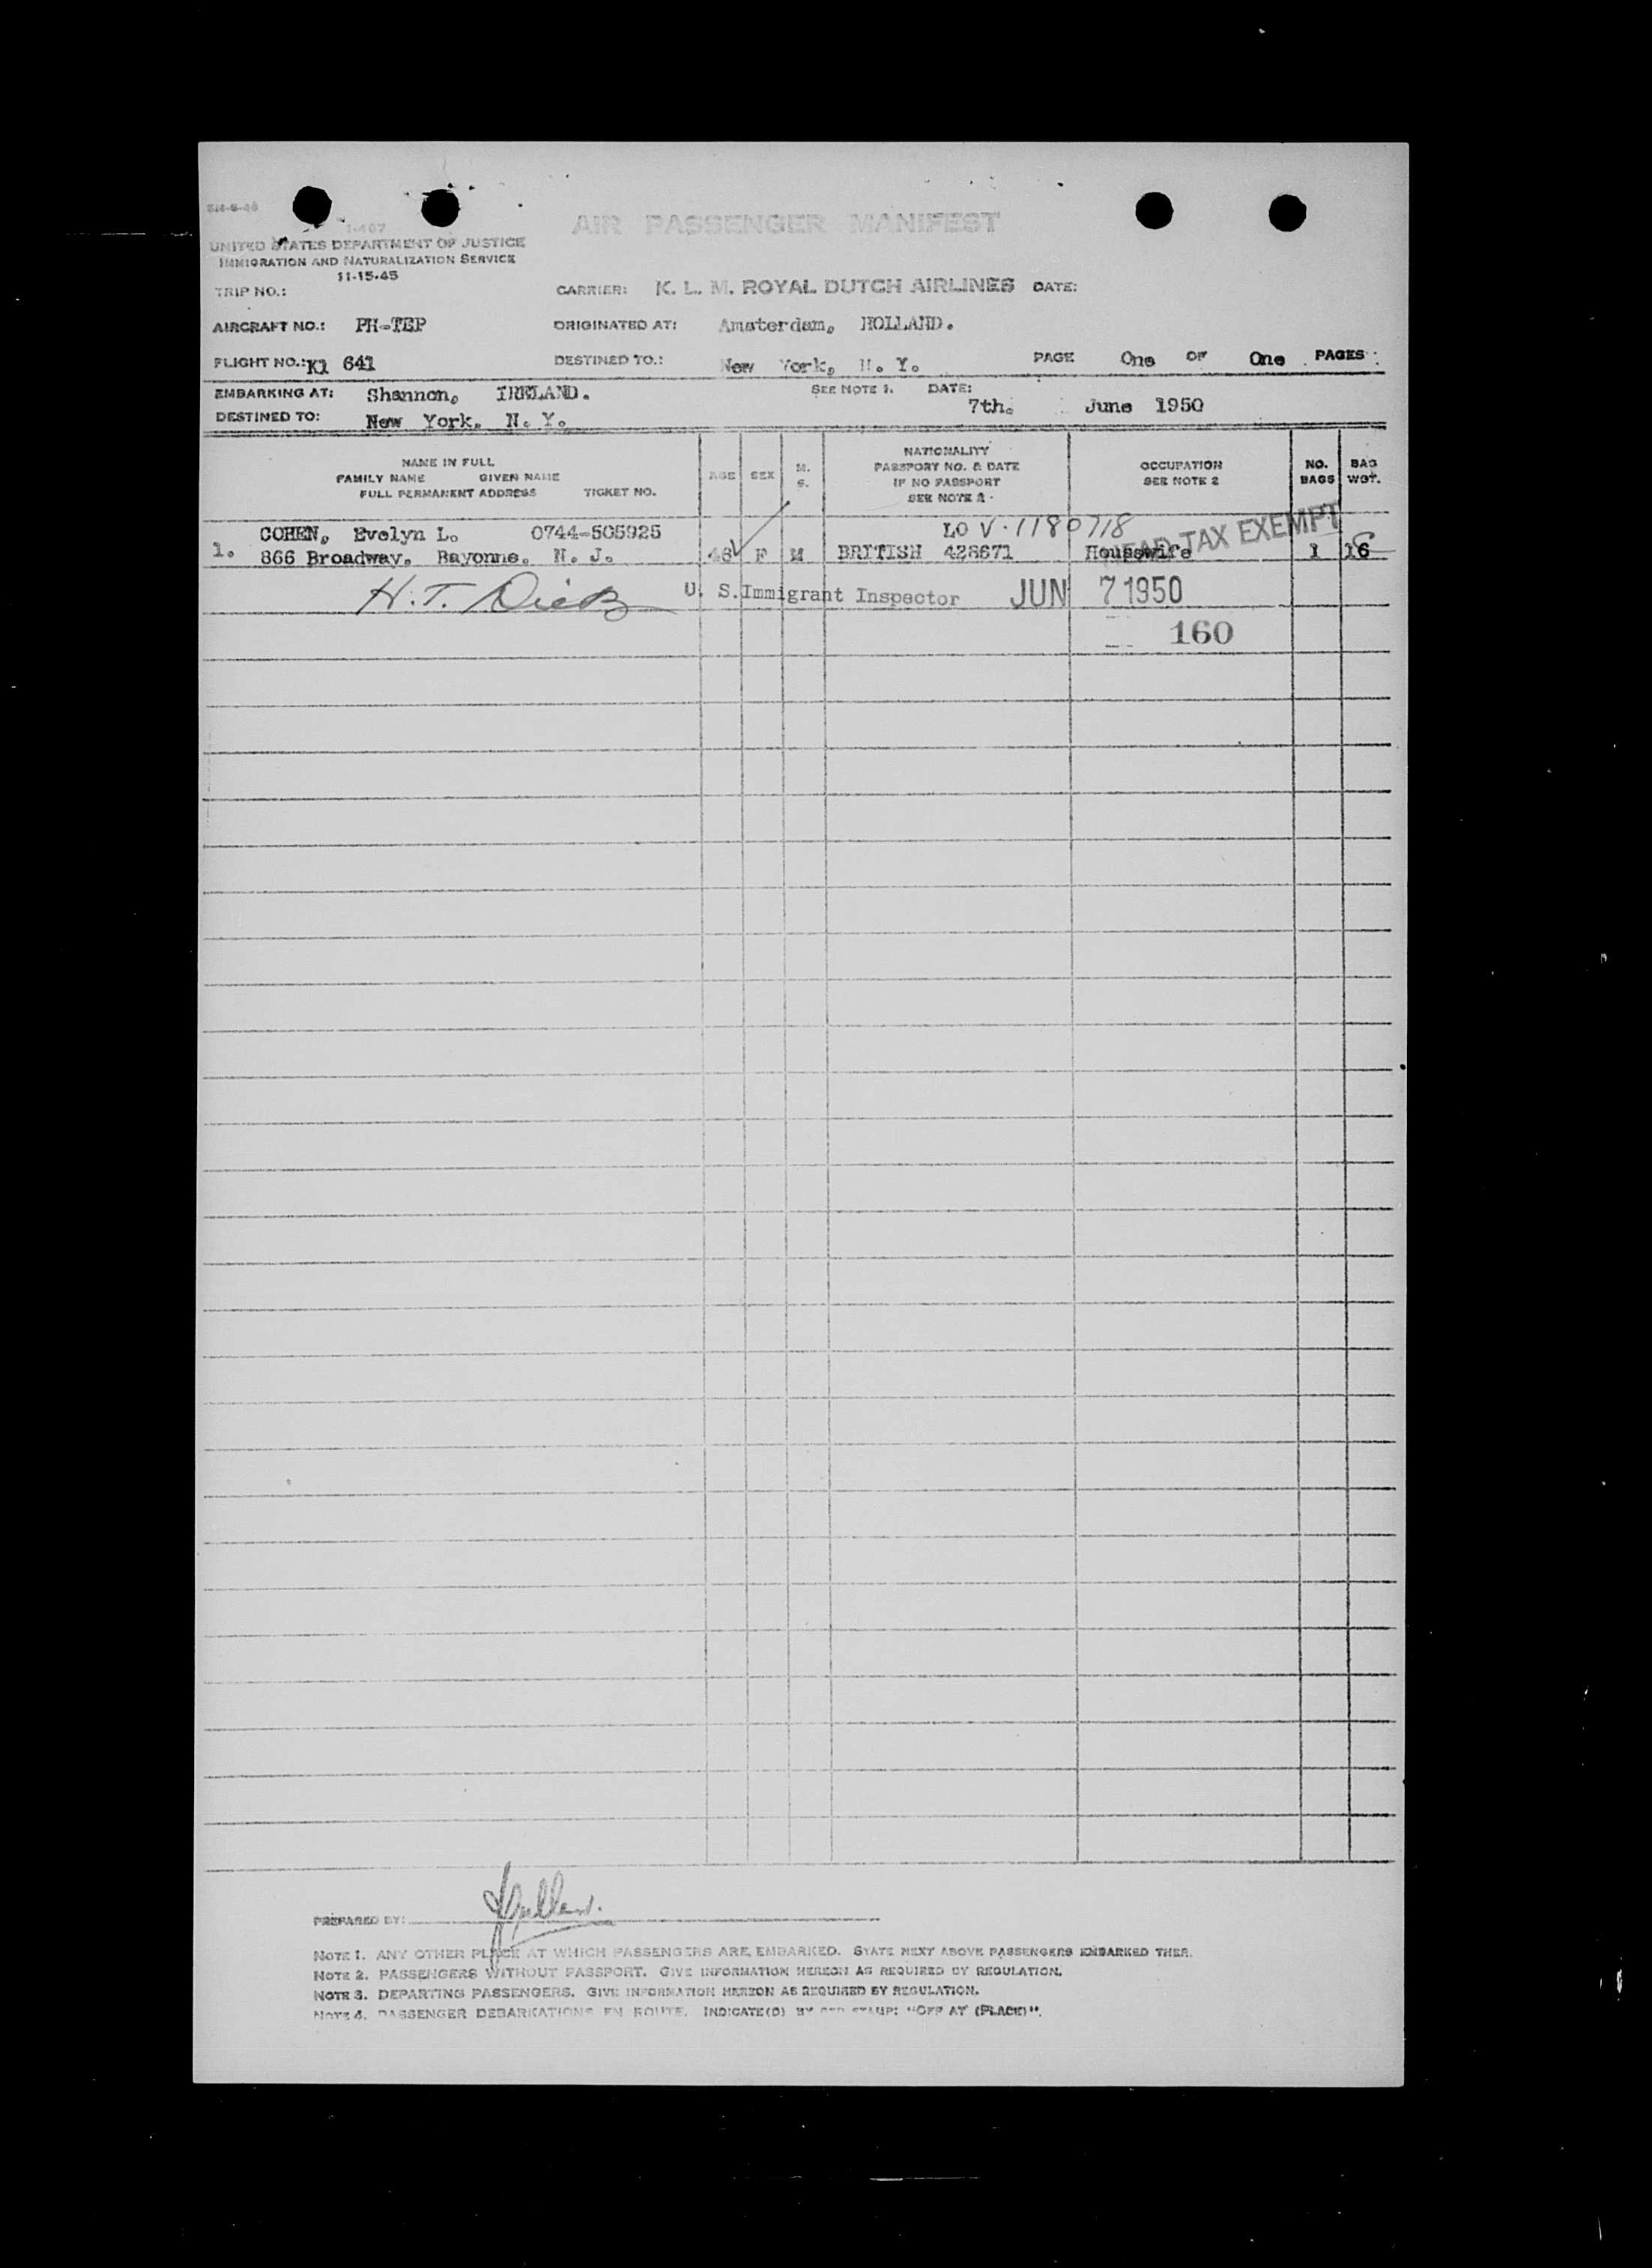 AIR PASSENGER MANIFEST
I-467
UNITED STATES DEPARTMENT OF JUSTICE
IMMIGRATION AND NATURALIZATION SERVICE
11-15-45
TRIP NO.: CARRIER: K. L. M. ROYAL DUTCH AIRLINES DATE:
AIRCRAFT NO.: PH-TEP ORIGINATED AT: Amsterdam, HOLLAND.
FLIGHT NO.: Kl 641 DESTINED TO.: New York, N. Y. PAGE One OF One PAGES
EMBARKING AT: Shannon, IRELAND. SEE NOTE 1. DATE: 7th. June 1950
DESTINED TO: New York, N. Y.
NAME IN FULL
FAMILY NAME GIVEN NAME
FULL PERMANENT ADDRESS TICKET NO.
AGE
SEX
M.
S.
NATIONALITY
PASSPORT NO. & DATE
IF NO PASSPORT
SEE NOTE 2
OCCUPATION
SEE NOTE 2
NO.
BAGS
BAG
WGT.
COHEN, Evelyn L. 0744-505925 LO V. 1180718 HEAD TAX EXEMPT
1. 866 Broadway. Bayonne. N. J. 46 F M BRITISH 428671 Housewife 1 16
H.T. U. S. Immigrant Inspector JUN 7 1950
160
PREPARED BY:
NOTE 1. ANY OTHER PLACE AT WHICH PASSENGERS ARE EMBARKED. STATE NEXT ABOVE PASSENGERS EMBARKED THER.
NOTE 2. PASSENGERS WITHOUT PASSPORT. GIVE INFORMATION HEREON AS REQUIRED BY REGULATION.
NOTE 3. DEPARTING PASSENGERS. GIVE INFORMATION HEREON AS REQUIRED BY REGULATION.
NOTE 4. PASSENGER DEBARKATIONS EN ROUTE. INDICATE(D) BY RED STAMP: "OFF AT (PLACE)".